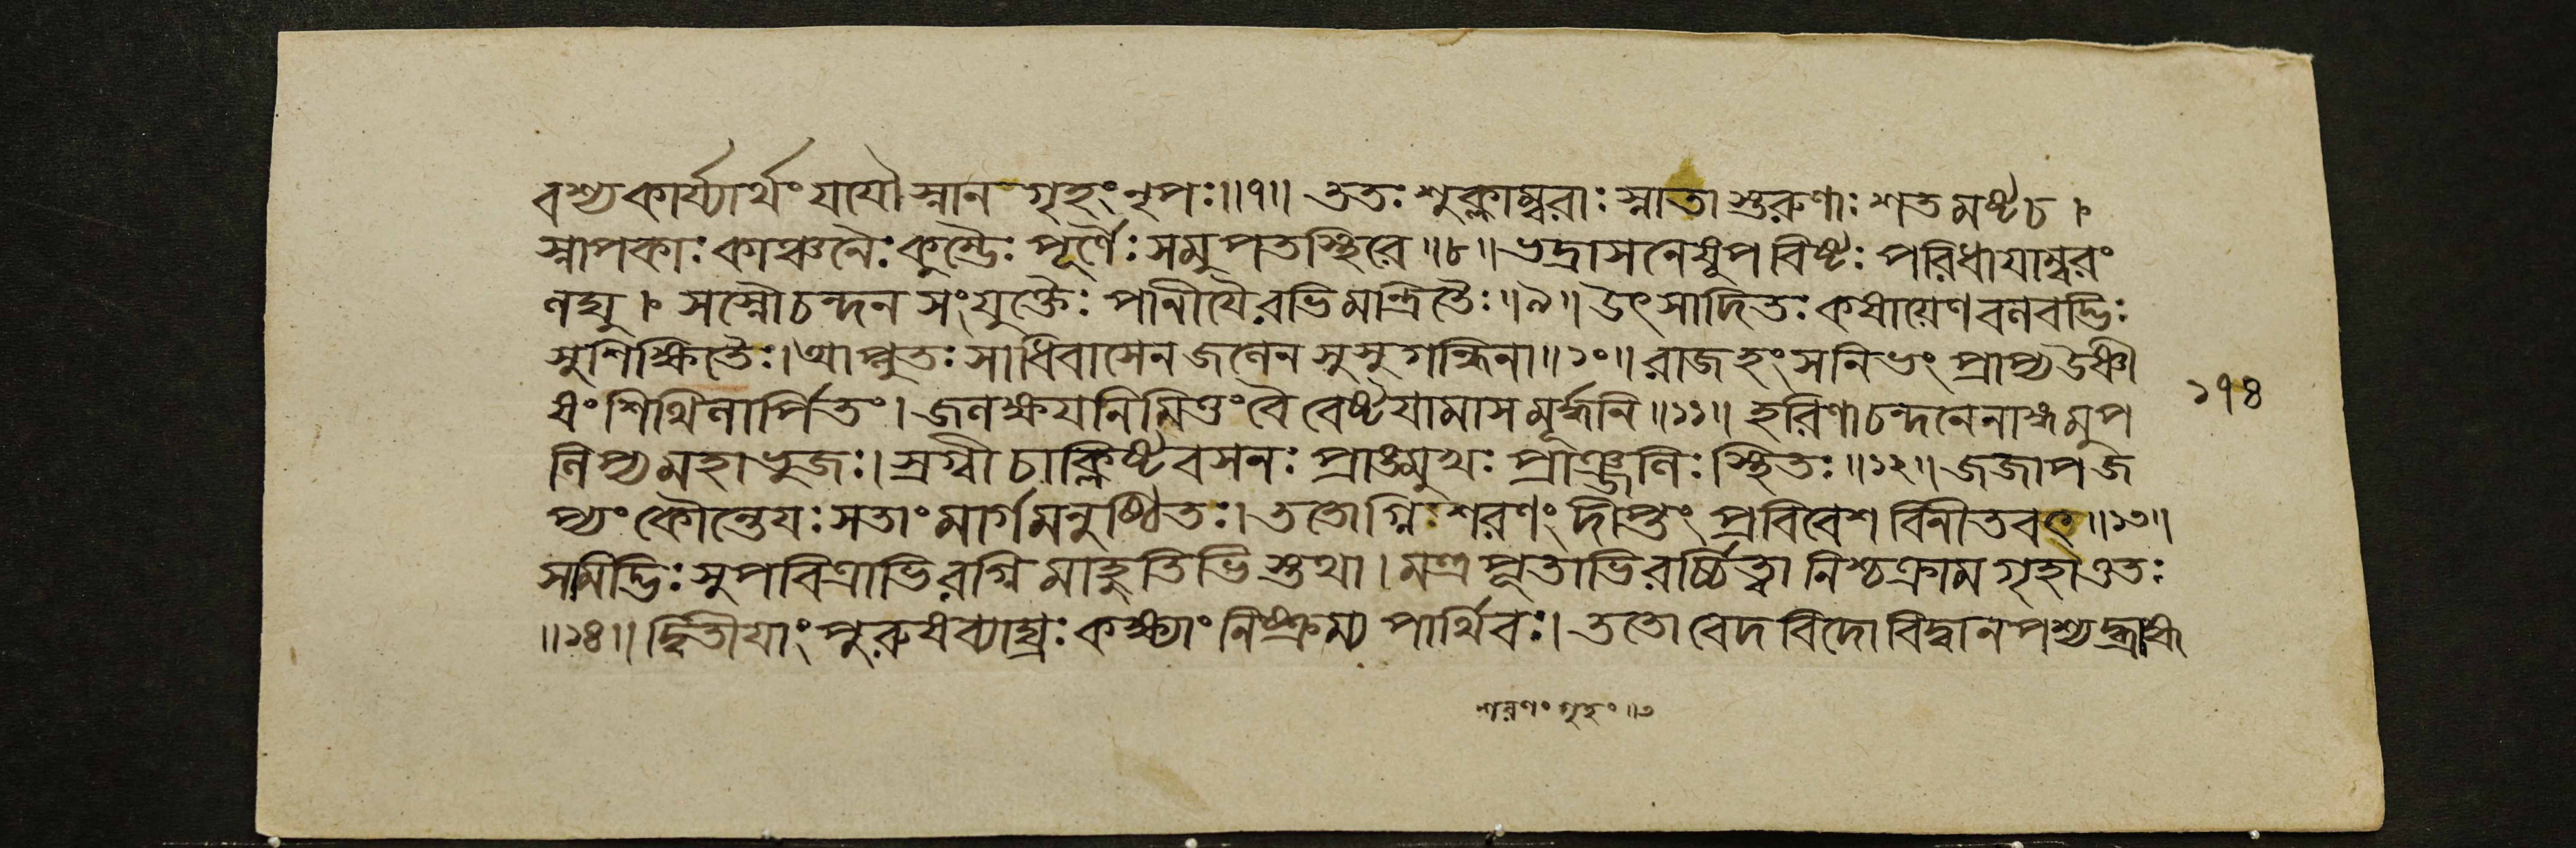 বশ্যকার্য্যার্থং যযৌ স্নান গৃহং নৃপঃ॥৭॥ ততঃ শুক্লাম্বরাঃ স্নাতাস্তরুণাঃ শতমষ্ট চ।
স্নাপকাঃ কাঞ্চনৈঃ কুম্ভৈঃ পূর্ণৈঃ সমুপতস্থিরে॥৮॥ ভদ্রাসনেষূপবিষ্টঃ পরিধাযাম্বরং
লঘু। সস্নৌ চন্দন সংযুক্তৈঃ পানীযৈরভিমন্ত্রিতৈঃ॥৯॥ উৎসাদিতঃ কষায়েণ বলবদ্ভিঃ
সুশিক্ষিতৈঃ। আপ্লুতঃ সাধিবাসেন জলেন সুসুগন্ধিনা॥১০॥ রাজহংসনিভং প্রাপ্য উষ্ণী
ষং শিথিলার্পিতং। জলক্ষযনিমিত্তং বৈ বেষ্টযামাস মূর্দ্ধনি॥১১॥ হরিণা চন্দনেনাঙ্গমুপ
লিপ্য মহাভুজঃ। স্রগ্বী চাক্লিষ্টবসনঃ প্রাঙ্মুখঃ প্রাঞ্জলিঃ স্থিতঃ॥১২॥ জজাপ জ
প্যং কৌন্তেযঃ সতাং মার্গমনুষ্ঠিতঃ। ততোগ্নিশরণং দীপ্তং প্রবিবেশ বিনীতবৎ॥১৩॥
সমিদ্ভিঃ সুপবিত্রাভিরগ্নিমাহুতিভিস্তথা। মন্ত্রপূতাভিরর্চ্চিত্বা নিশ্চক্রাম গৃহাত্ততঃ
॥১৪॥ দ্বিতীযাং পুরুষব্যাঘ্রঃ কক্ষ্যাং নিষ্ক্রম্য পার্থিবঃ। ততো বেদবিদো বিদ্বানপশ্যদ্ব্রাহ্ম
১৭৪
শরণং গৃহং॥৩